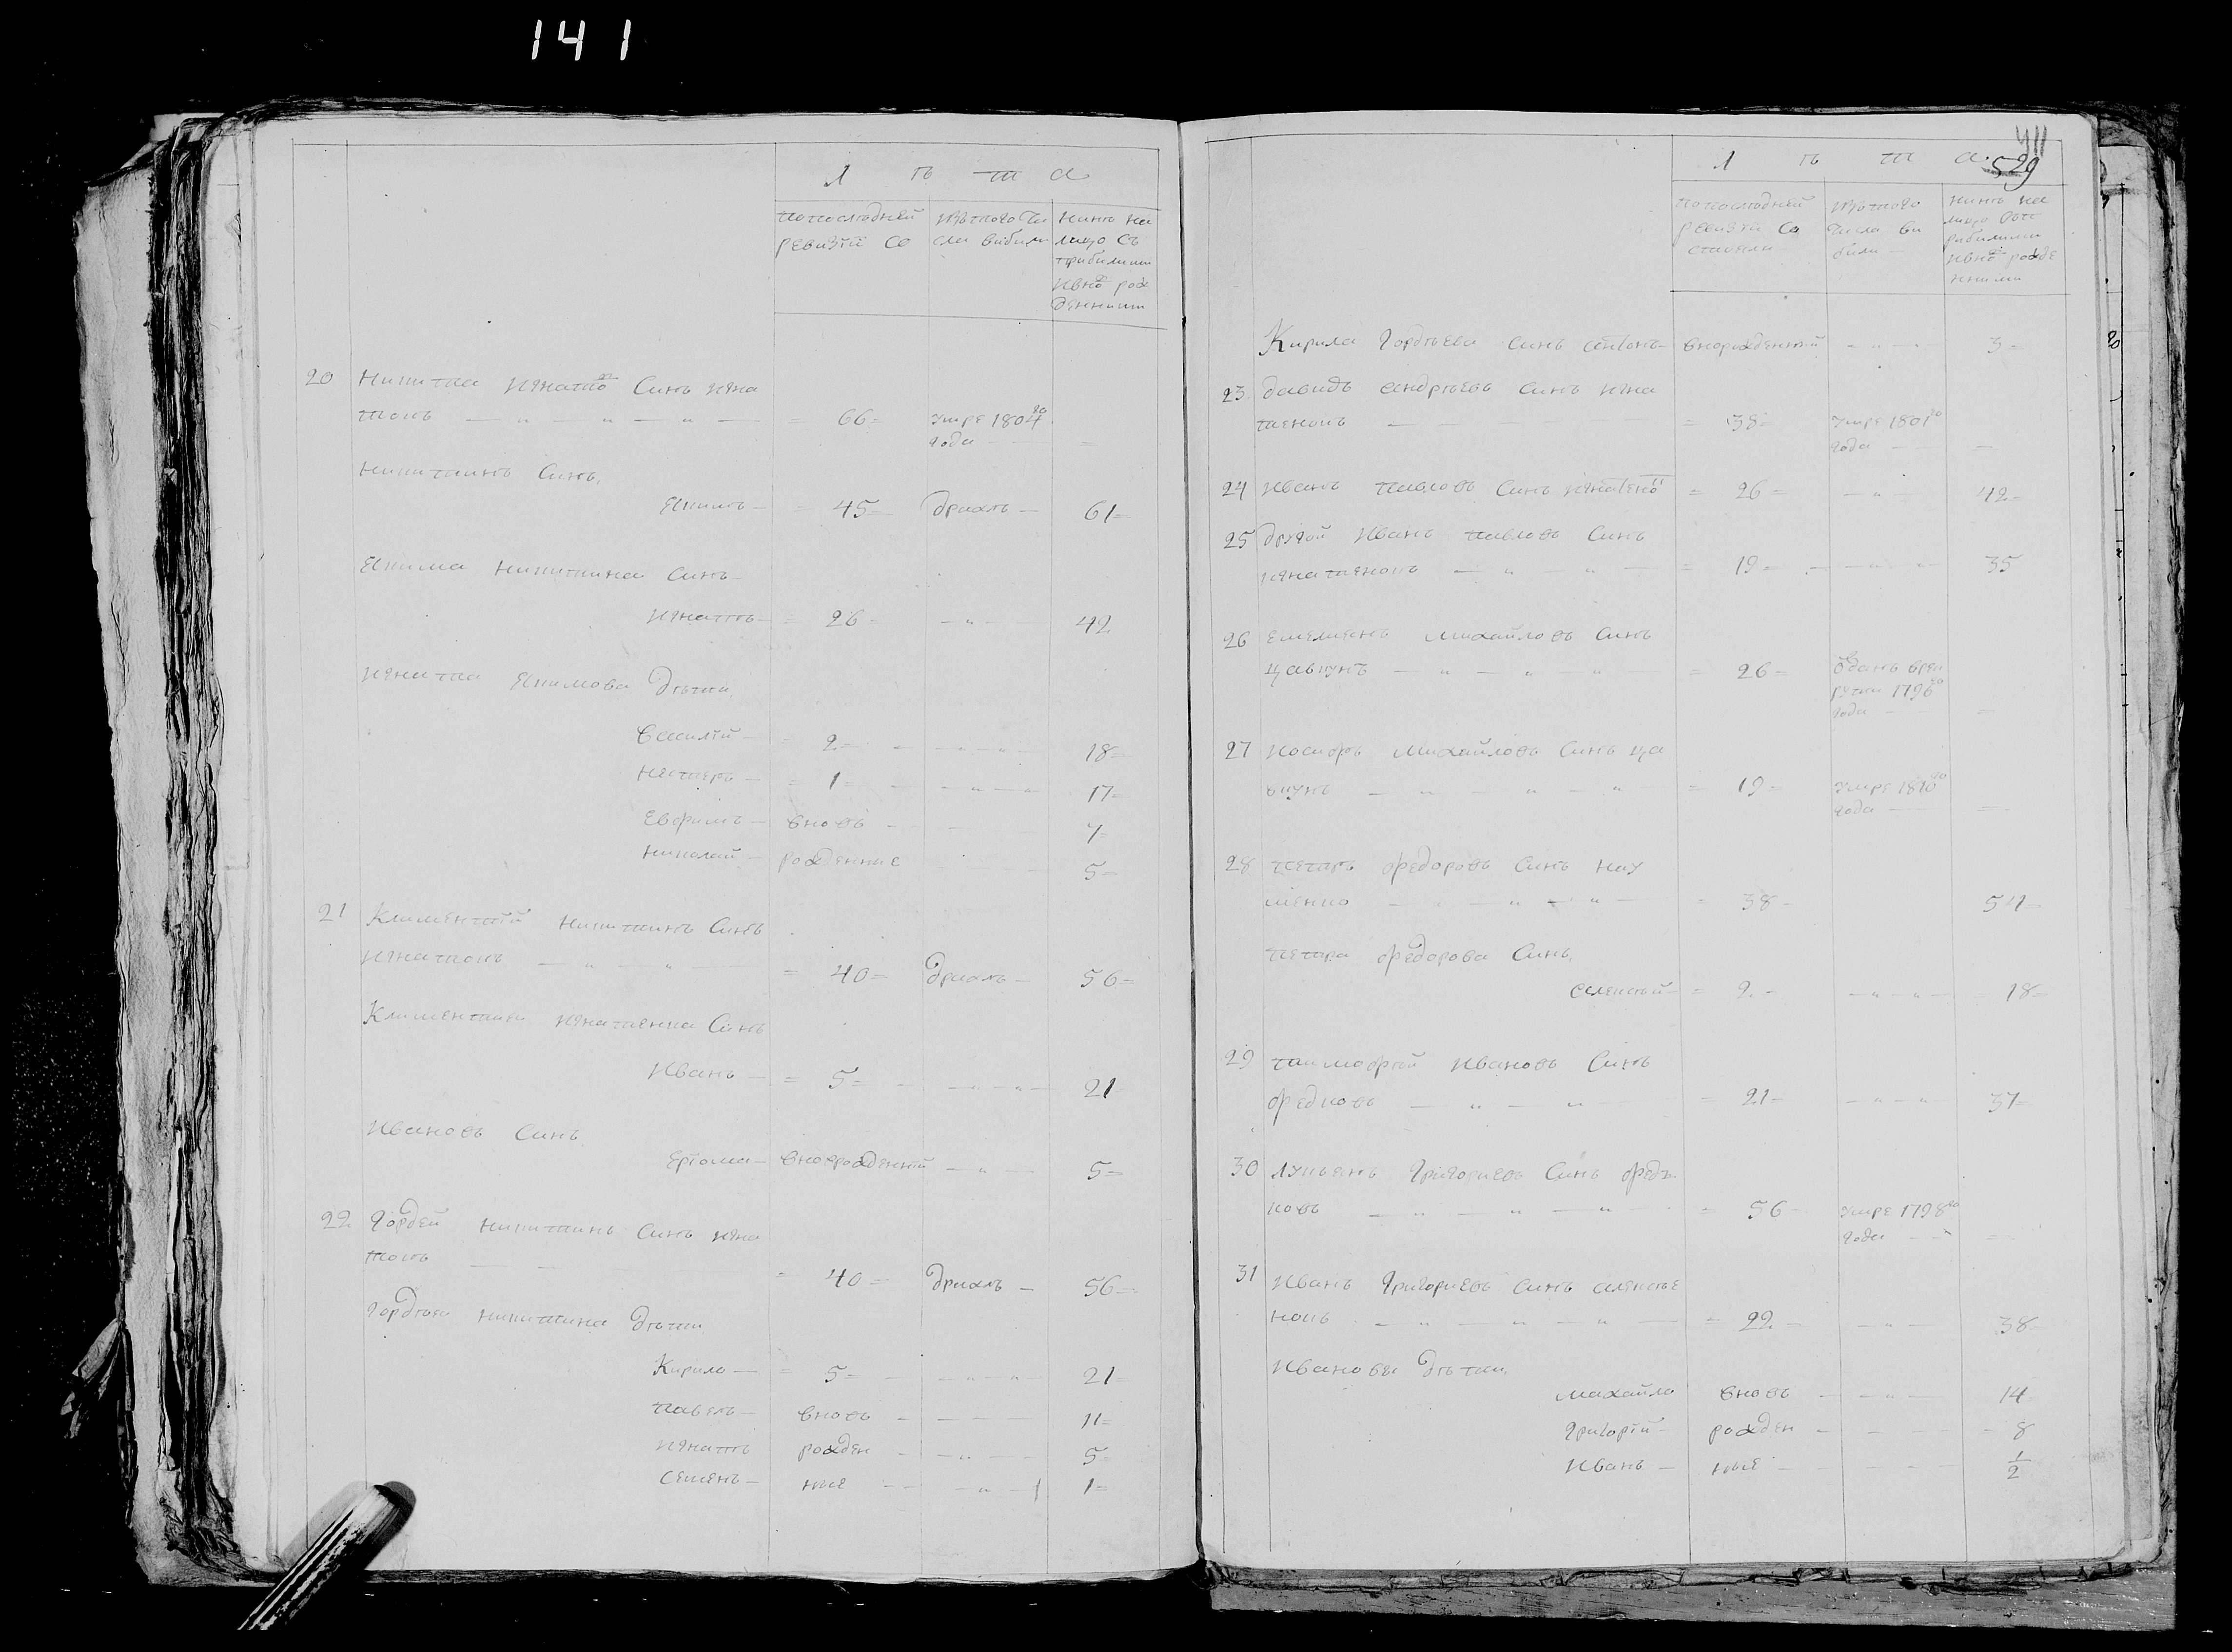 141
л ѣ т а
по последней
ревизїи со
изъ того чи
сла выбыли
ныне на
лицо съ
прибылими
и вно рож
денними
20 Никита Игнатов Синъ Игна
тюкъ — 66 = умре 1804го
года —
Никитинъ Синъ,
Якимъ — 45 = дряхлъ — 61 =
Якима Никитина Синъ
Игнатъ — 26 = 42
Игната Якимова дѣти,
Василїй — 2 = 18 =
Нестеръ — 1 = 17 =
Евфимъ — вновь 7 =
Николай — рожденные 5 =
21 Климентїй Никитинъ Синъ
Игнатюкъ — 40 = дряхлъ — 56 =
Климентия Игнатенка Синъ
Иванъ — 5 = 21
Ивановъ Синъ
Ерїома — вноврожденнїй 5 =
22 Гордей Никитинъ Синъ Игна
тюкъ 40 = дряхлъ — 56 =
Гордѣя Никитина дѣти
Кирило — 5 = 21
Павелъ — вновь 11 =
Игнатъ рожден 5
Семенъ — ные 1 =
411
529
л ѣ т а
по последней
ревизїи со
стояли
изъ того
числа вы
были —
ныне на
лицо съ п
рибылими
и вно рожде
нними
Кирила Гордѣева Синъ вноврожденнїй 3 =
23 Давидъ Андрѣевъ Синъ Игна
тенокъ = 38 = умре 1801го
года —
24 Иванъ Павловъ Синъ = 26 = 42 =
25 другой Иванъ Павловъ Синъ
Игнатенокъ = 19 = 35
26 Емелянъ Михайловъ Синъ
= 26 = отданъ в рек
руты 1796го
года —
27 Иосифъ Михайловъ Синъ
= 19 = умре 1810го
года —
28 Петръ Федоровъ Синъ Нау
менко = 38 54
Петра Федорова Синъ,
Алексѣй = 2 = 18 =
29 Тимофѣй Ивановъ Синъ
Федковъ 21 = 37
30 Лукьянъ Григориевъ Синъ Федь
ковъ 56 умре 1798го
года —
31 Иванъ Григориевъ Синъ Алексѣе
нокъ = 22 38
Ивановы дѣти,
Михайло вновь 14
Григорїй — рожден 8
Иванъ — ные 1/2